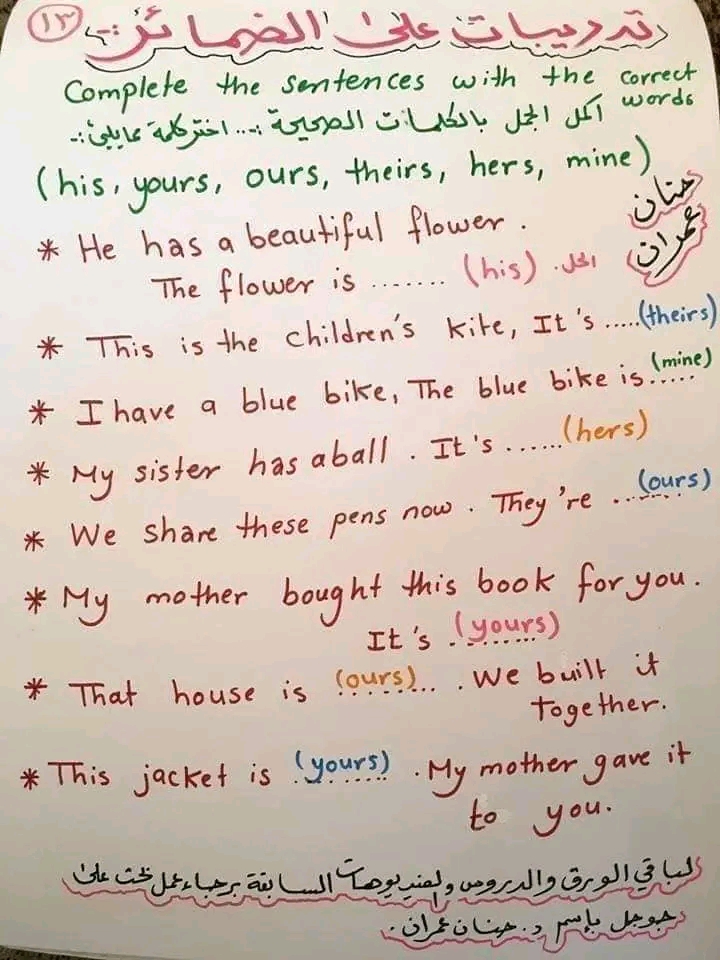 ١٣ تدريبات على الضمائر :-
Complete the sentences with the correct words
أكمل الجمل بالكلمات الصحيحة :... اختر كلمة مما يلي :-
(his, yours, ours, theirs, hers, mine)
حنان عمران
* He has a beautiful flower.
The flower is ....... (his) الحل.
* This is the children's kite, It's .....(theirs)
* I have a blue bike, The blue bike is.....(mine)
* My sister has a ball. It's ......(hers)
* We share these pens now. They're .......(ours)
* My mother bought this book for you.
It's (yours)
* That house is (ours).... . We built it
Together.
* This jacket is (yours) . My mother gave it
to you.
لباقي الورق والدروس والفيديوهات السابقة برجاء عمل بحث على
جوجل بإسم د. حنان عمران.